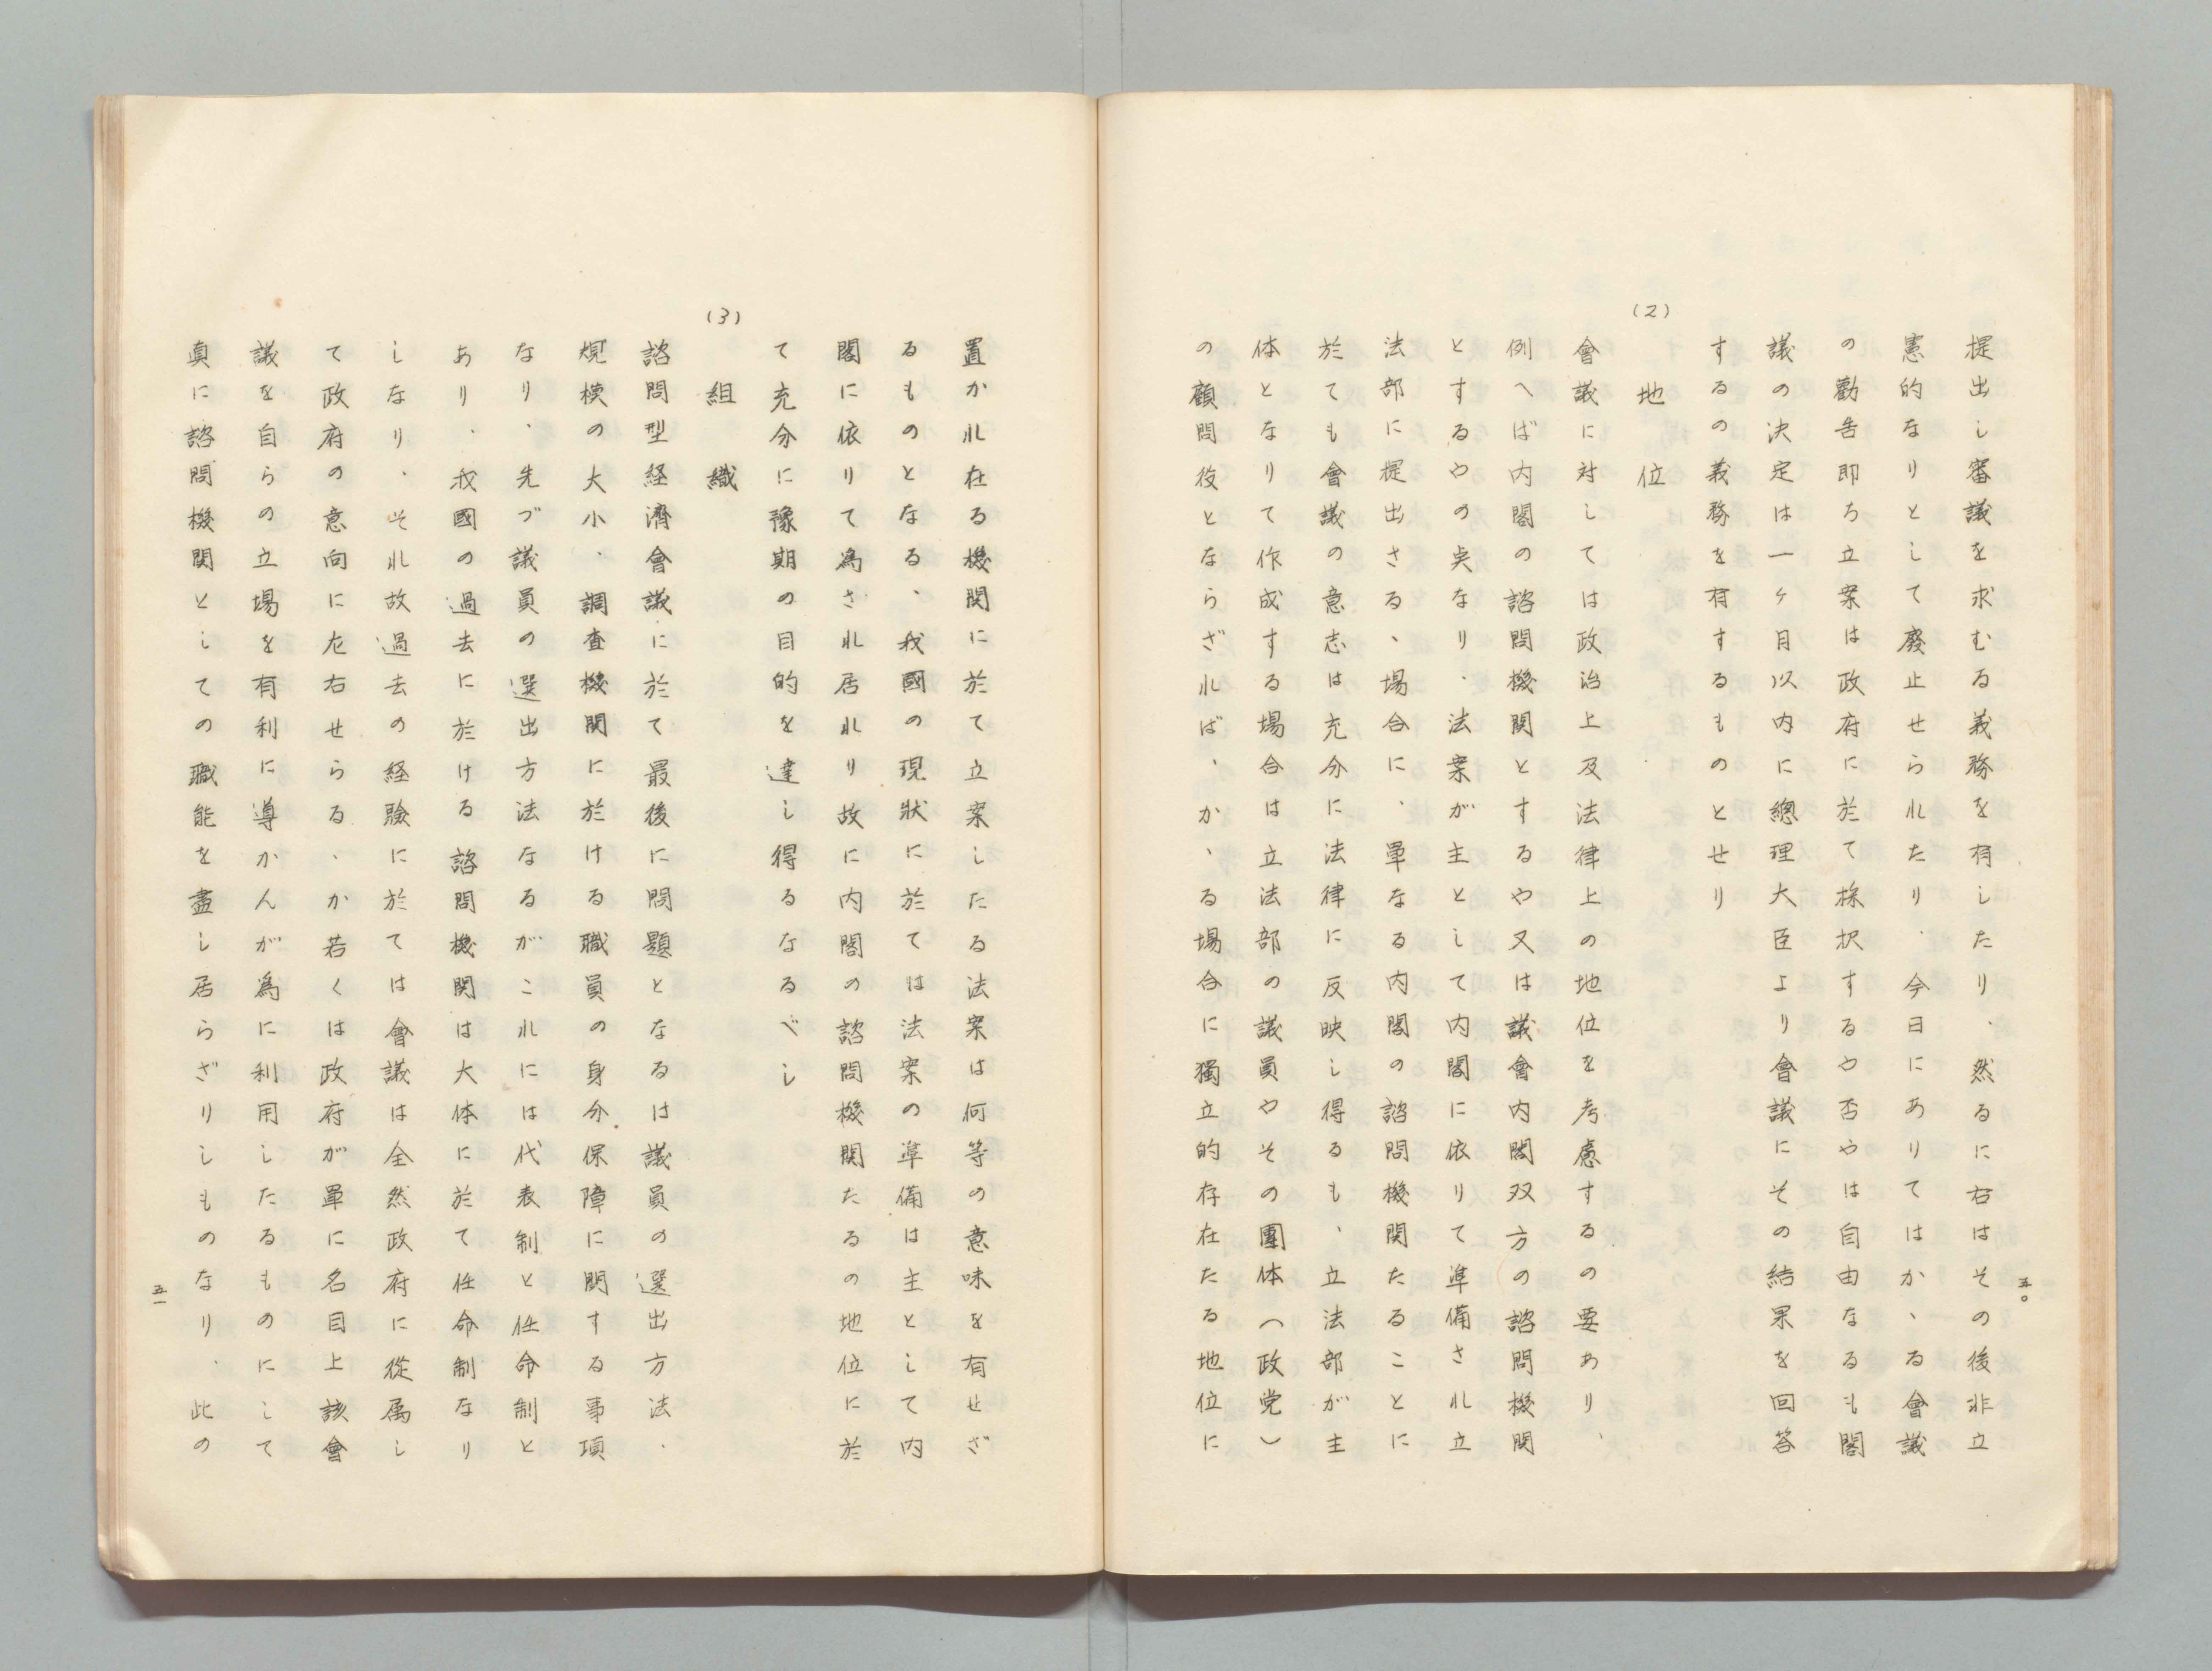 提出し審議を求むる義務を有したり、然るに右はその後非立
憲的なりとして廢止せられたり、今日にありてはかゝる會議
の勸告即ち立案は政府に於て採択するや否やは自由なるも閣
議の決定は一ヶ月以内に總理大臣より會議にその結果を回答
するの義務を有するものとせり
(2)
地位
會議に対しては政治上及法律上の地位を考慮するの要あり、
例へば内閣の諮問機関とするや又は議會内閣双方の諮問機関
とするやの奌なり、法案が主として内閣に依りて準備され立
法部に提出さる、場合に、單なる内閣の諮問機関たることに
於ても會議の意志は充分に法律に反映し得るも、立法部が主
体となりて作成する場合は立法部の議員やその團体(政党)
の顧問役とならざれば、かゝる場合に獨立的存在たる地位に
五〇
置かれ在る機関に於て立案したる法案は何等の意味を有せざ
るものとなる、我國の現狀に於ては法案の準備は主として内
閣に依りて爲され居れり故に内閣の諮問機関たるの地位に於
て充分に豫期の目的を達し得るなるべし
(3)
組織
諮問型経濟會議に於て最後に問題となるは議員の選出方法、
規模の大小、調査機関に於ける職員の身分保障に関する事項
なり、先づ議員の選出方法なるがこれには代表制と任命制と
あり、我國の過去に於ける諮問機関は大体に於て任命制なり
しなり、それ故過去の経驗に於ては會議は全然政府に從属し
て政府の意向に左右せらる、か若くは政府が單に名目上該會
議を自らの立場を有利に導かんが爲に利用したるものにして
真に諮問機関としての職能を盡し居らざりしものなり、此の
五一